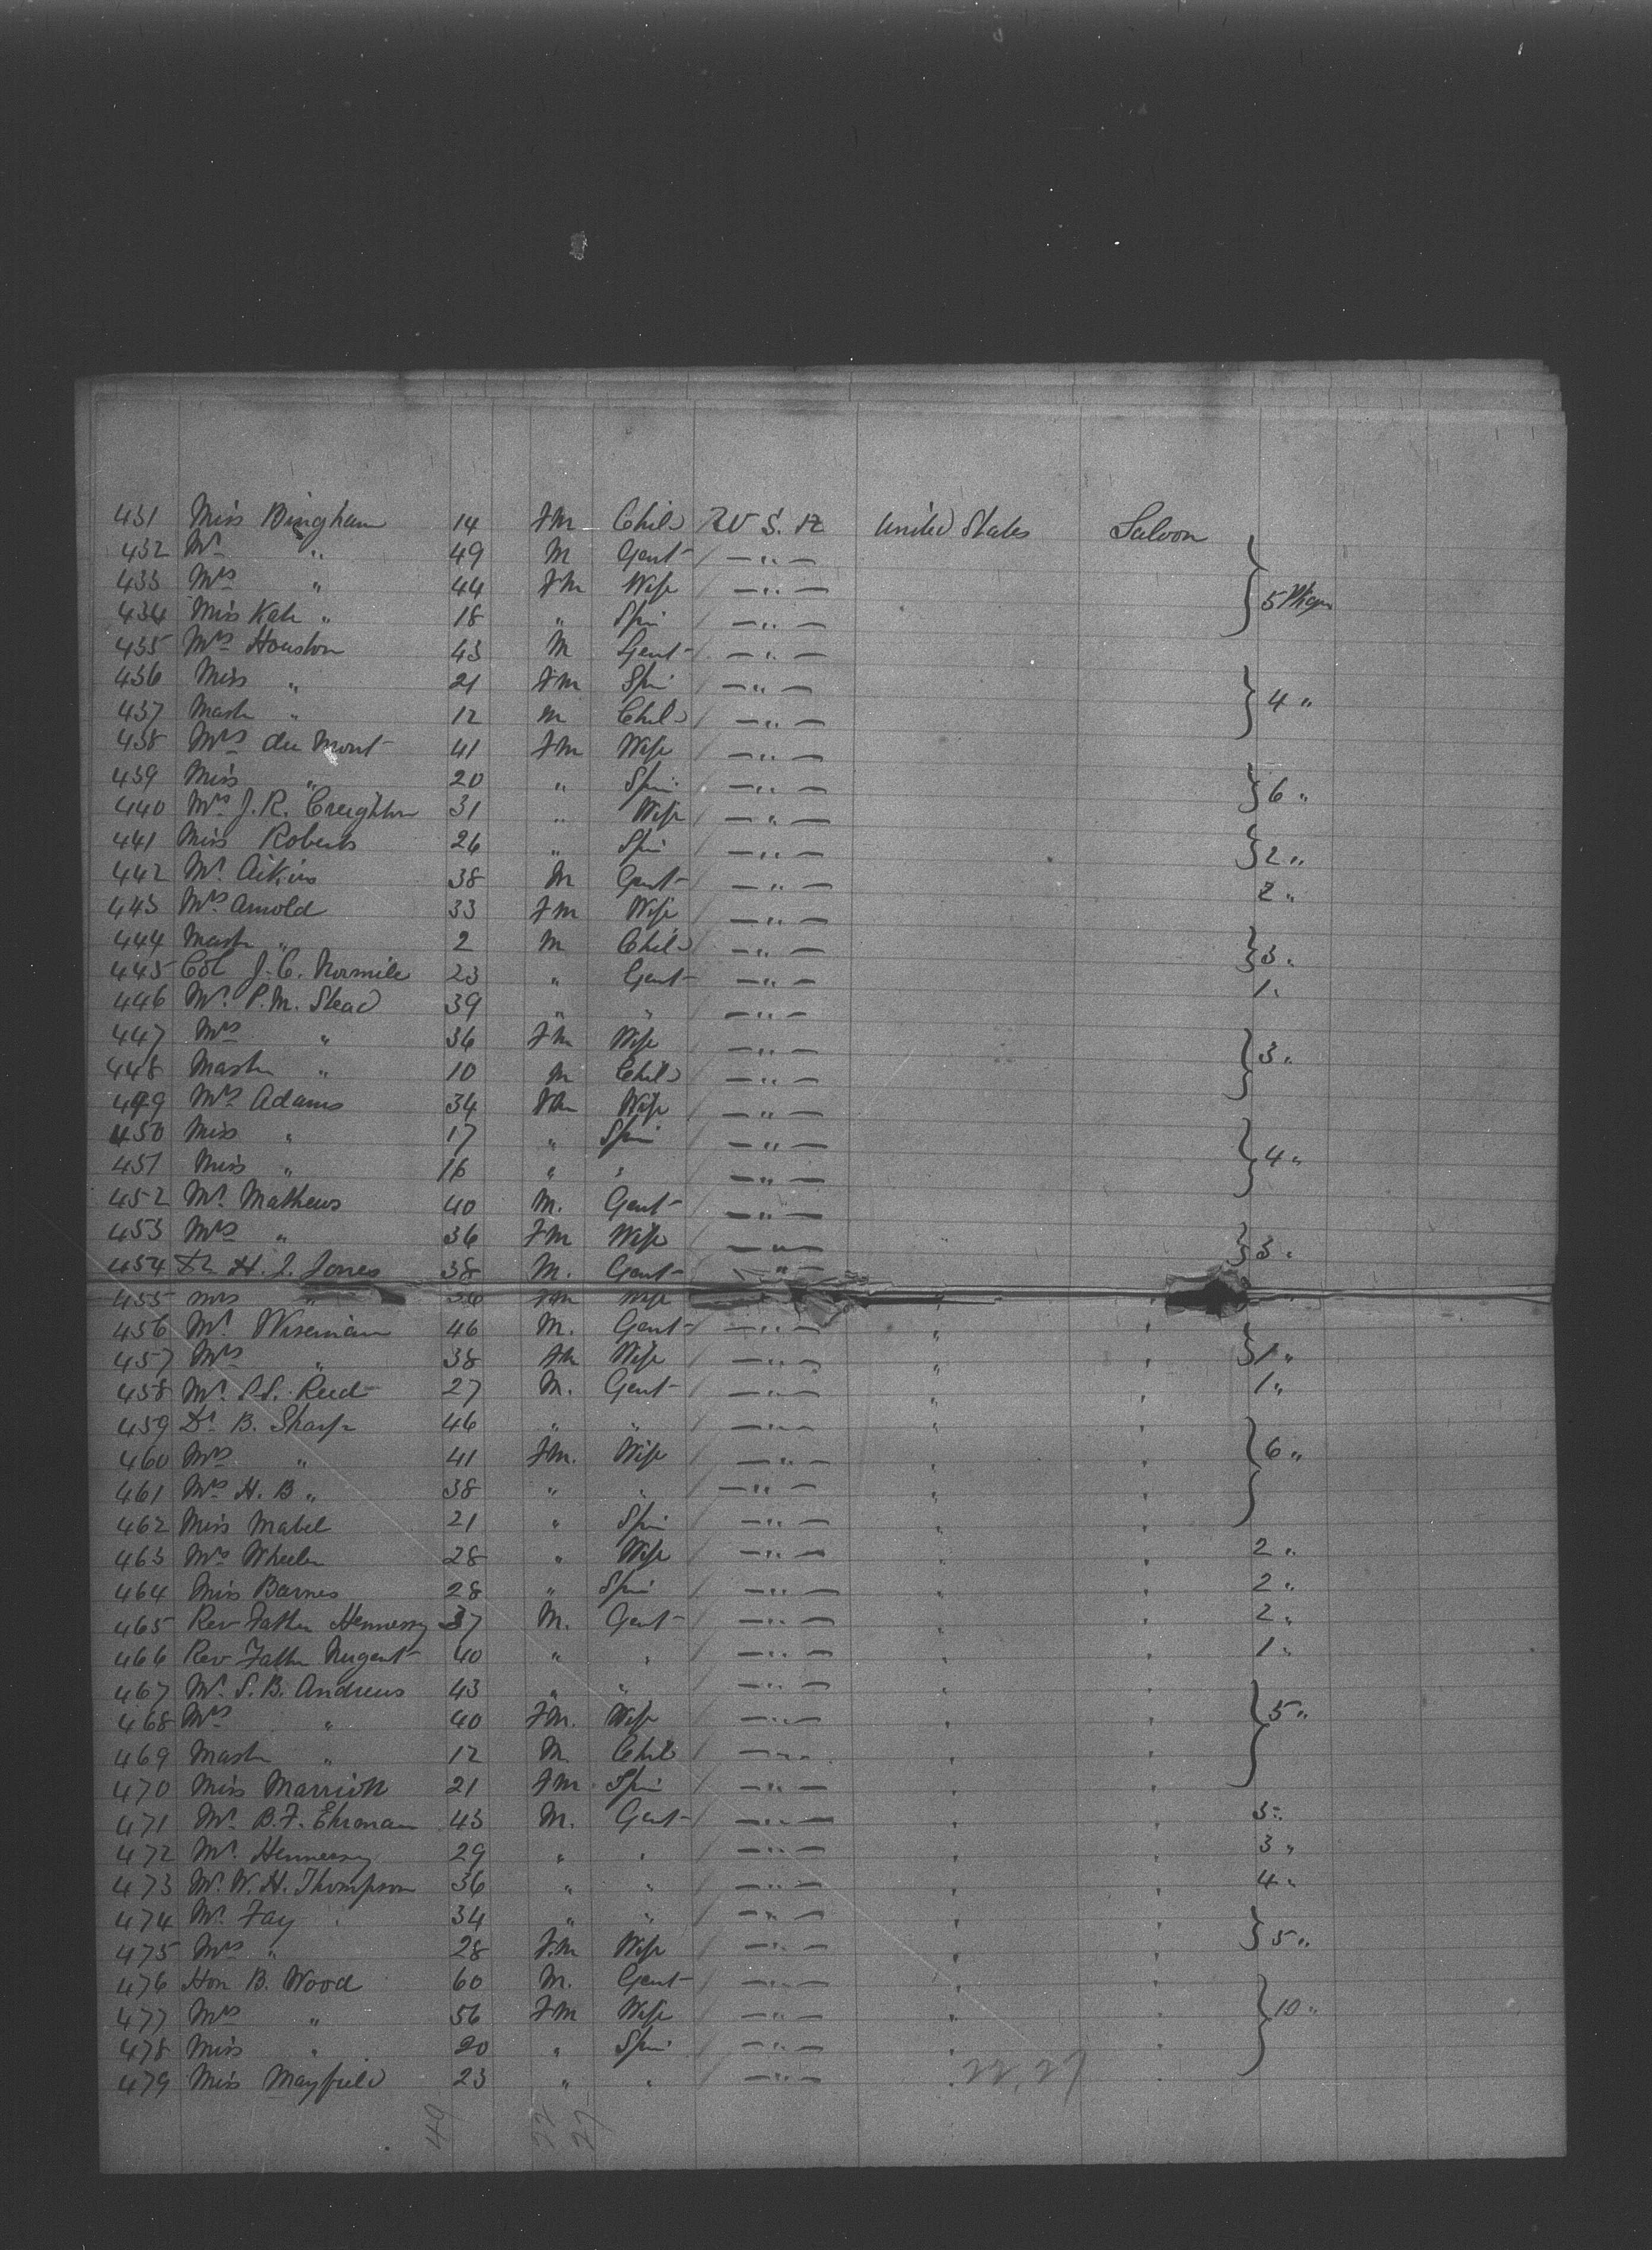 431 Miss Bingham 14 Fm Child U.S.A United States Saloon
432 Mr " 49 M Gent — " —
433 Mrs " 44 Fm Wife — " — 5 Pkgs
434 Miss Kate " 18 " Spin — " —
435 Mrs Houston 43 M Gent — " —
436 Miss " 21 Fm Spin — " — 4 "
437 Mastr " 12 M Child — " —
438 Mrs du Mont 41 Fm Wife — " —
439 Miss " 20 " Spin — " — 6 "
440 Mrs J. R. Creighton 31 " Wife — " —
441 Miss Roberts 26 " Spin — " — 2 "
442 Mr Aitkins 38 M Gent — " — 2 "
443 Mrs Arnold 33 Fm Wife — " —
444 Mastr " 2 M Child — " — 3 "
445 Col J. C. Normile 23 " Gent — " — 1 "
446 Mr P. M. Stead 39 " " — " —
447 Mrs " 36 Fm Wife — " — 3 "
448 Mastr " 10 M Child — " —
449 Mrs Adams 34 Fm Wife — " —
450 Miss " 17 " Spin — " — 4 "
451 Miss " 16 " " — " —
452 Mr Mathews 40 M. Gent — " —
453 Mrs " 36 Fm Wife — " — 3 "
454 Dr H. J. Jones 38 M. Gent — " —
455 Mrs " 36 Fm Wife " "
456 Mr Wiseman 46 M. Gent — " — " "
457 Mrs " 38 Fm Wife — " — " " 1 "
458 Mr S. S. Reed 27 M. Gent — " — " " 1 "
459 Dr B. Sharp 46 " " — " — " "
460 Mrs " 41 Fm. Wife — " — " " 6 "
461 Mrs H. B " 38 " " — " — " "
462 Miss Mabel 21 " Spin — " — " "
463 Mrs Wheeler 28 " Wife — " — " " 2 "
464 Miss Barnes 28 " Spin — " — " " 2 "
465 Rev Father Hennessy 37 M. Gent — " — " " 2 "
466 Rev Father Nugent 40 " " — " — " " 1 "
467 Mr S. B. Andrews 43 " " — " — " "
468 Mrs " 40 Fm. Wife — " — " " 5 "
469 Mastr " 12 M. Child — " — " "
470 Miss Marrick 21 Fm Spin — " — " "
471 Mr B. F. Ehrman 43 M. Gent — " — " " 3 "
472 Mr Hennessy 29 " " — " — " " 3 "
473 Mr W. H. Thompson 36 " " — " — " " 4 "
474 Mr Fay 34 " " — " — " "
475 Mrs " 28 Fm Wife — " — " " 5 "
476 Hon B. Wood 60 M. Gent — " — " "
477 Mrs " 56 Fm Wife — " — " " 10 "
478 Miss " 20 " Spin — " — " "
479 Miss Mayfield 23 " " — " — " "
22.27
49 22 27